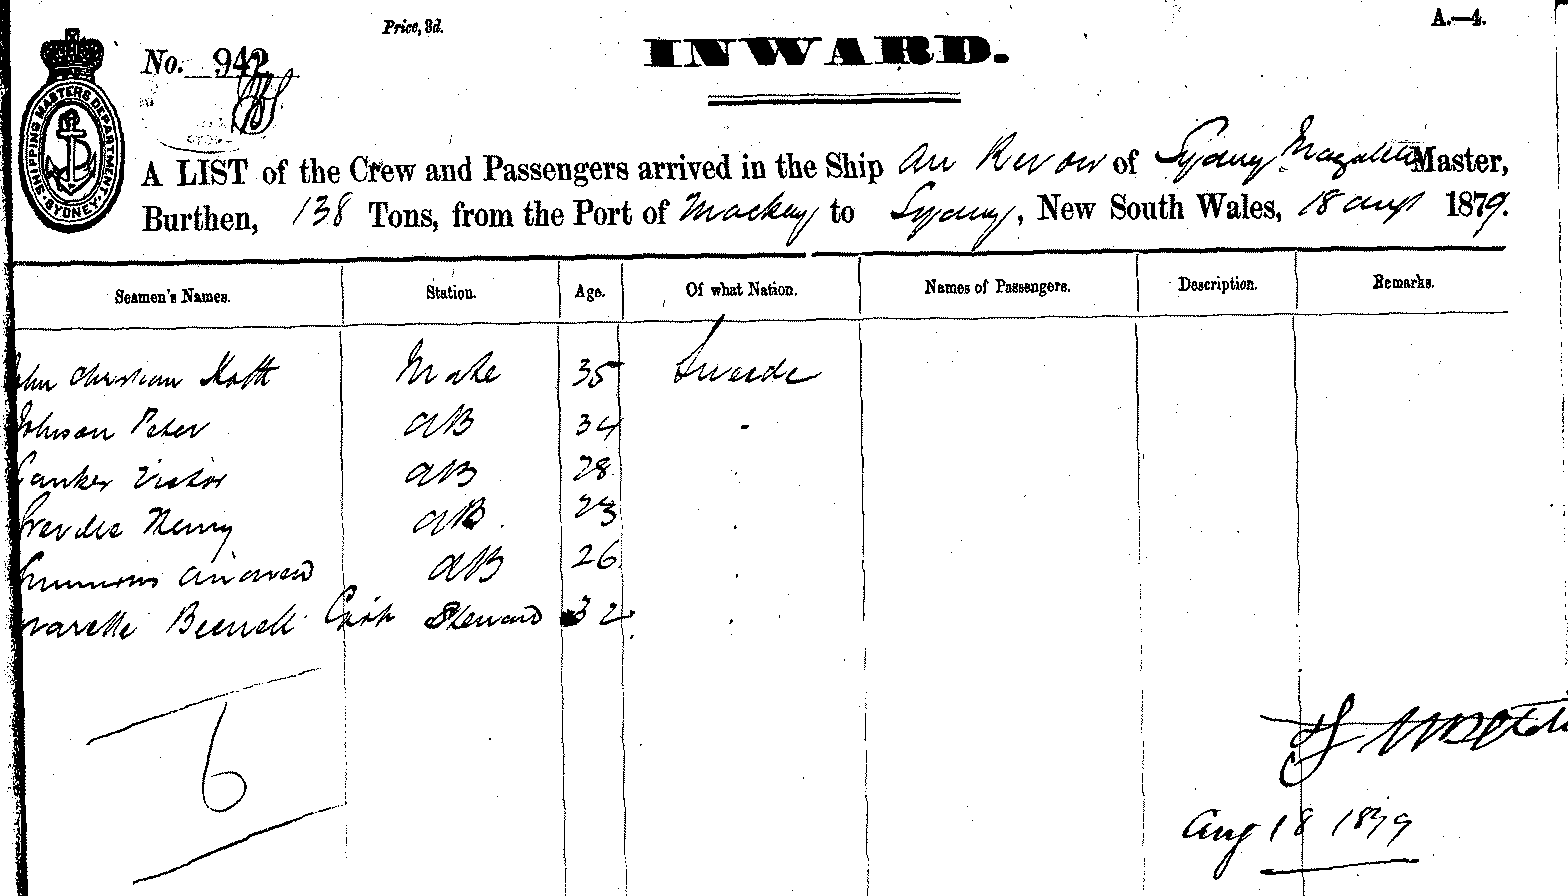 Price, 3d.
A.—4.
No. 942
INWARD.
SHIPPING MASTERS DEPARTMENT · SYDNEY ·
A LIST of the Crew and Passengers arrived in the Ship Au Revoir of Sydney Master,
Burthen, 138 Tons, from the Port of Mackay to Sydney, New South Wales, 18 augt 1879.
Seamen's Names. Station. Age. Of what Nation. Names of Passengers. Description. Remarks.
John Christian Mate 35 Swede
Johnson Peter AB 34
Victor AB 28
Henry AB 23
AB 26
Steward 32
6
Aug 18 1879